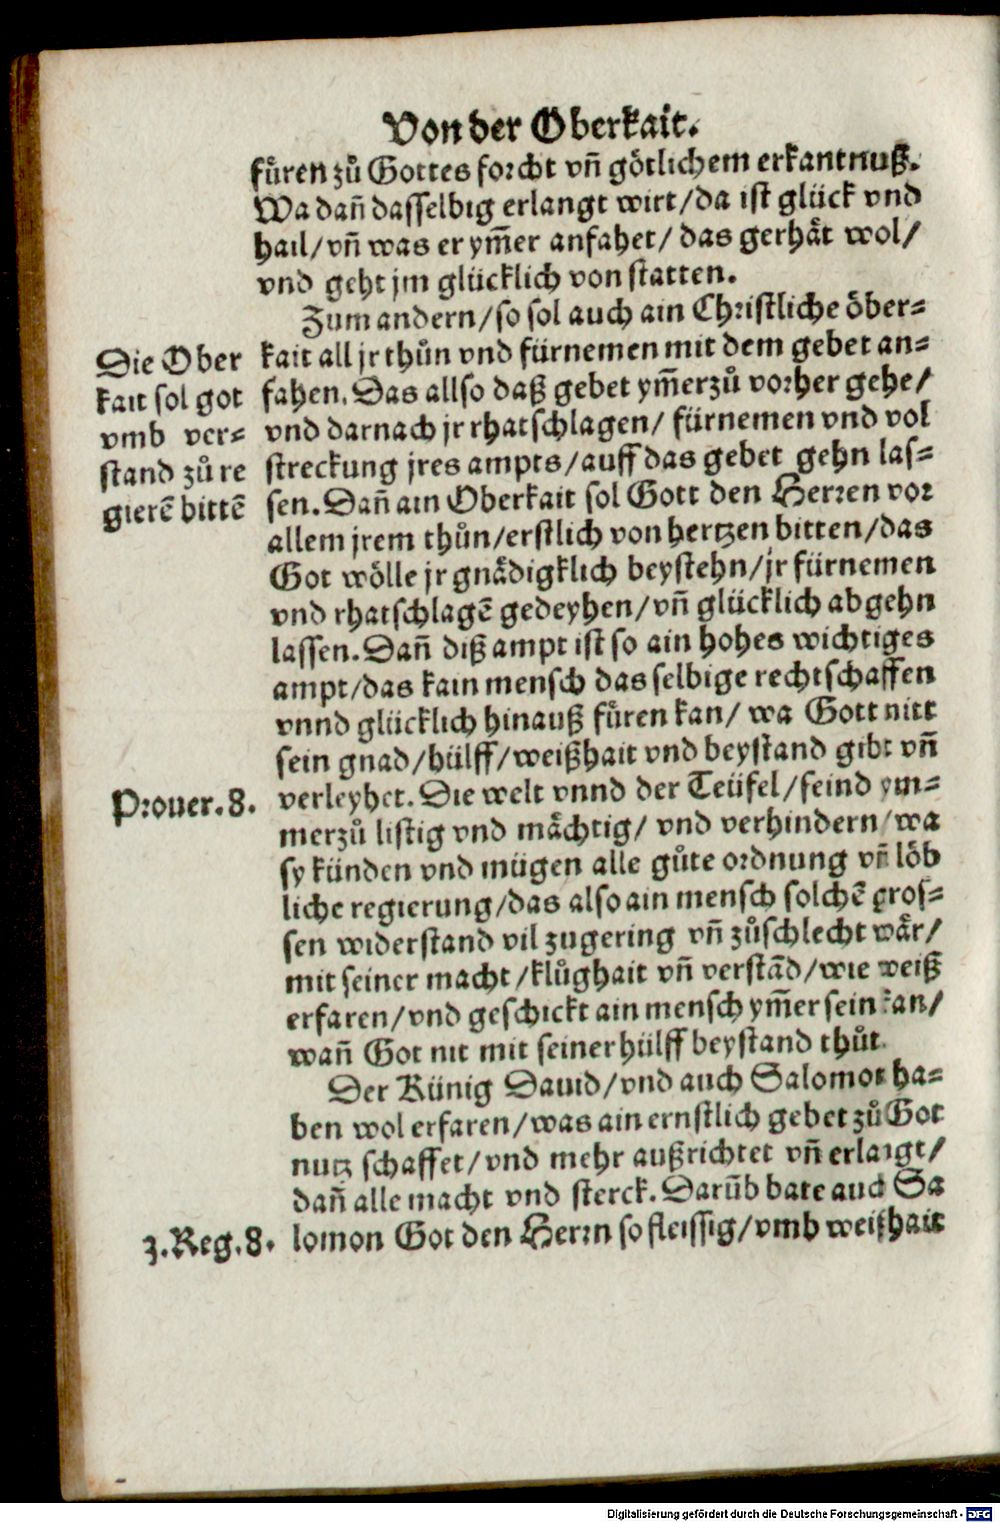 Von der Oberkait.
fůren zů Gottes forcht vñ götlichem erkantnuß.
Wa dañ dasselbig erlangt wirt/da ist glück vnd
hail/vñ was er ym̃er anfahet/ das gerhåt wol/
vnd geht jm glücklich von statten.
Zum andern/so sol auch ain Christliche öber⸗
Die Ober
kait sol got
vmb ver⸗
stand zů re
gierẽ bittẽ
kait all jr thůn vnd fürnemen mit dem gebet an⸗
fahen. Das allso daß gebet ym̃erzů vorher gehe/
vnd darnach jr rhatschlagen/ fürnemen vnd vol
streckung jres ampts/auff das gebet gehn las⸗
sen. Dañ ain Oberkait sol Gott den Herren vor
allem jrem thůn/erstlich von hertzen bitten/das
Got wölle jr gnådigklich beystehn/jr fürnemen
vnd rhatschlagẽ gedeyhen/vñ glücklich abgehn
lassen. Dañ diß ampt ist so ain hohes wichtiges
ampt/das kain mensch das selbige rechtschaffen
vnnd glücklich hinauß fůren kan/ wa Gott nitt
sein gnad/hülff/weißhait vnd beystand gibt vñ
Prouer.8.
verleyhet. Die welt vnnd der Teüfel/seind ym⸗
merzů listig vnd måchtig/ vnd verhindern/wa
sy künden vnd mügen alle gůte ordnung vñ löb
liche regierung/das also ain mensch solchẽ gros⸗
sen widerstand vil zugering vñ zůschlecht wår/
mit seiner macht/klůghait vñ verstãd/wie weiß
erfaren/vnd geschickt ain mensch ym̃er sein kan/
wañ Got nit mit seiner hülff beystand thůt.
Der Künig Dauid/vnd auch Salomon ha⸗
ben wol erfaren/was ain ernstlich gebet zů Got
nutz schaffet/vnd mehr außrichtet vñ erlangt/
dañ alle macht vnd sterck. Darũb bate auch Sa
3.Reg.8.
lomon Got den Herrn so fleissig/vmb weißhait
Digitalisierung gefördert durch die Deutsche Forschungsgemeinschaft - DFG